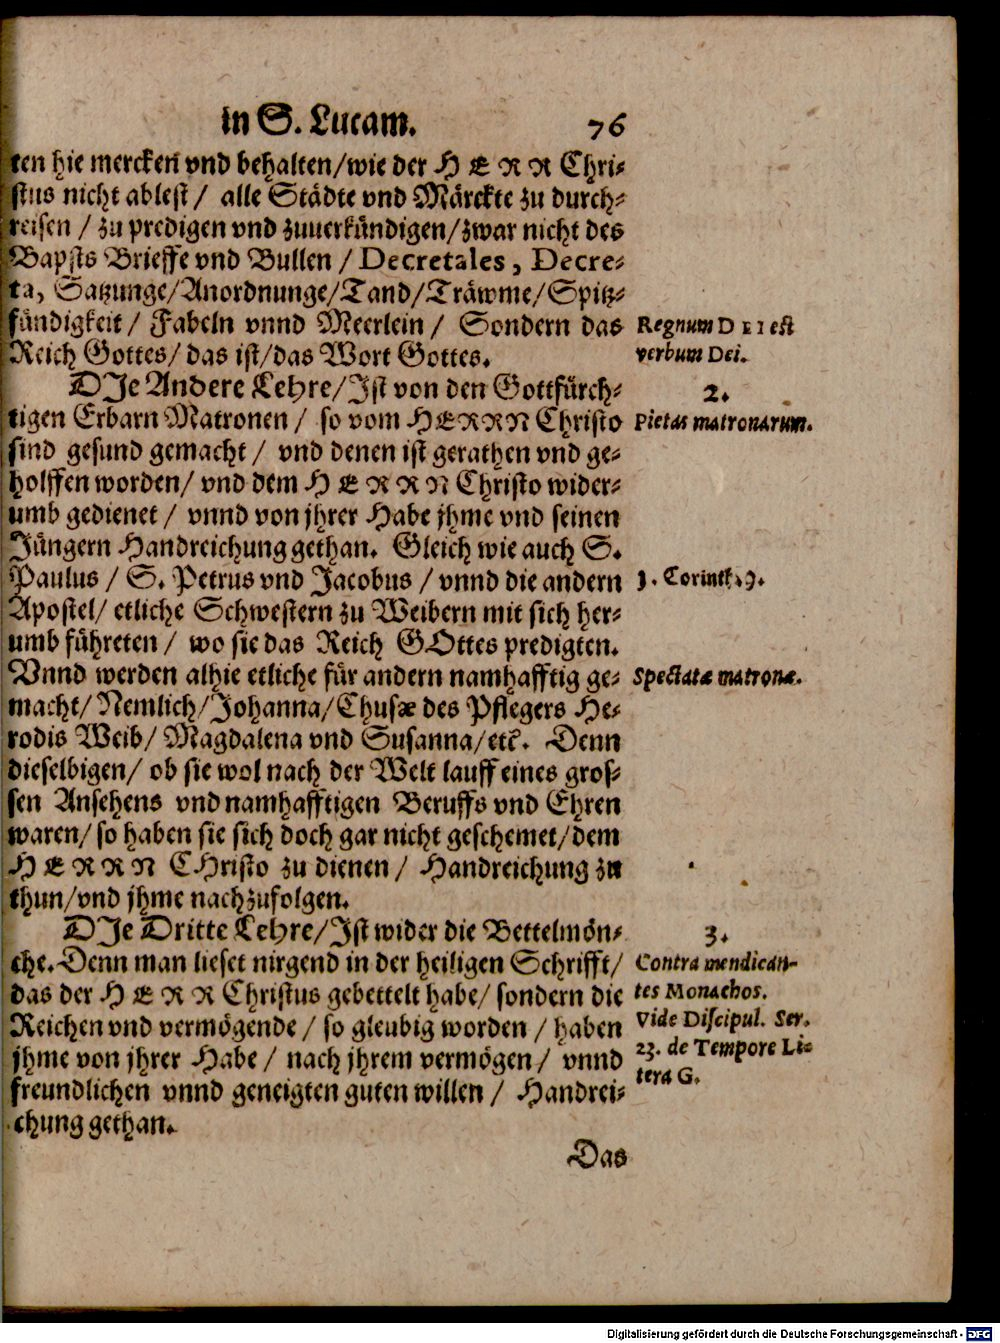 in S. Lucam. 76
ten hie mercken vnd behalten/wie der HERR Chri-
stus nicht ablest/ alle Städte vnd Märckte zu durch-
reisen / zu predigen vnd zuuerkündigen/zwar nicht des
Bapsts Brieffe vnd Bullen / Decretales, Decre-
ta, Satzunge/Anordnunge/Tand/Träwme/Spitz-
fündigkeit/ Fabeln vnnd Meerlein/ Sondern das
Regnum DEI est
Reich Gottes/ das ist/das Wort Gottes.
verbum Dei.
DJe Andere Lehre/Jst von den Gottfürch-
2.
tigen Erbarn Matronen/ so vom HERRN Christo
Pietas matronarum.
sind gesund gemacht/ vnd denen ist gerathen vnd ge-
holffen worden/ vnd dem HERRN Christo wider-
umb gedienet / vnnd von jhrer Habe jhme vnd seinen
Jüngern Handreichung gethan. Gleich wie auch S.
Paulus / S. Petrus vnd Jacobus / vnnd die andern
1. Corinth. 9.
Apostel/ etliche Schwestern zu Weibern mit sich her-
umb führeten / wo sie das Reich GOttes predigten.
Vnnd werden alhie etliche für andern namhafftig ge-
Spectatæ matronæ.
macht/ Nemlich/Johanna/Chusæ des Pflegers He-
rodis Weib/ Magdalena vnd Susanna/etc. Denn
dieselbigen/ ob sie wol nach der Welt lauff eines gros-
sen Ansehens vnd namhafftigen Beruffs vnd Ehren
waren/ so haben sie sich doch gar nicht geschemet/dem
HERRN CHristo zu dienen/ Handreichung zu
thun/vnd jhme nachzufolgen.
DJe Dritte Lehre/Jst wider die Bettelmön-
3.
che. Denn man lieset nirgend in der heiligen Schrifft/
Contra mendican-
das der HERR Christus gebettelt habe/ sondern die
tes Monachos.
Reichen vnd vermögende / so gleubig worden / haben
Vide Discipul. Ser.
jhme von jhrer Habe / nach jhrem vermögen / vnnd
23. de Tempore Li-
freundlichen vnnd geneigten guten willen / Handrei-
tera G.
chung gethan.
Das
Digitalisierung gefördert durch die Deutsche Forschungsgemeinschaft - DFG